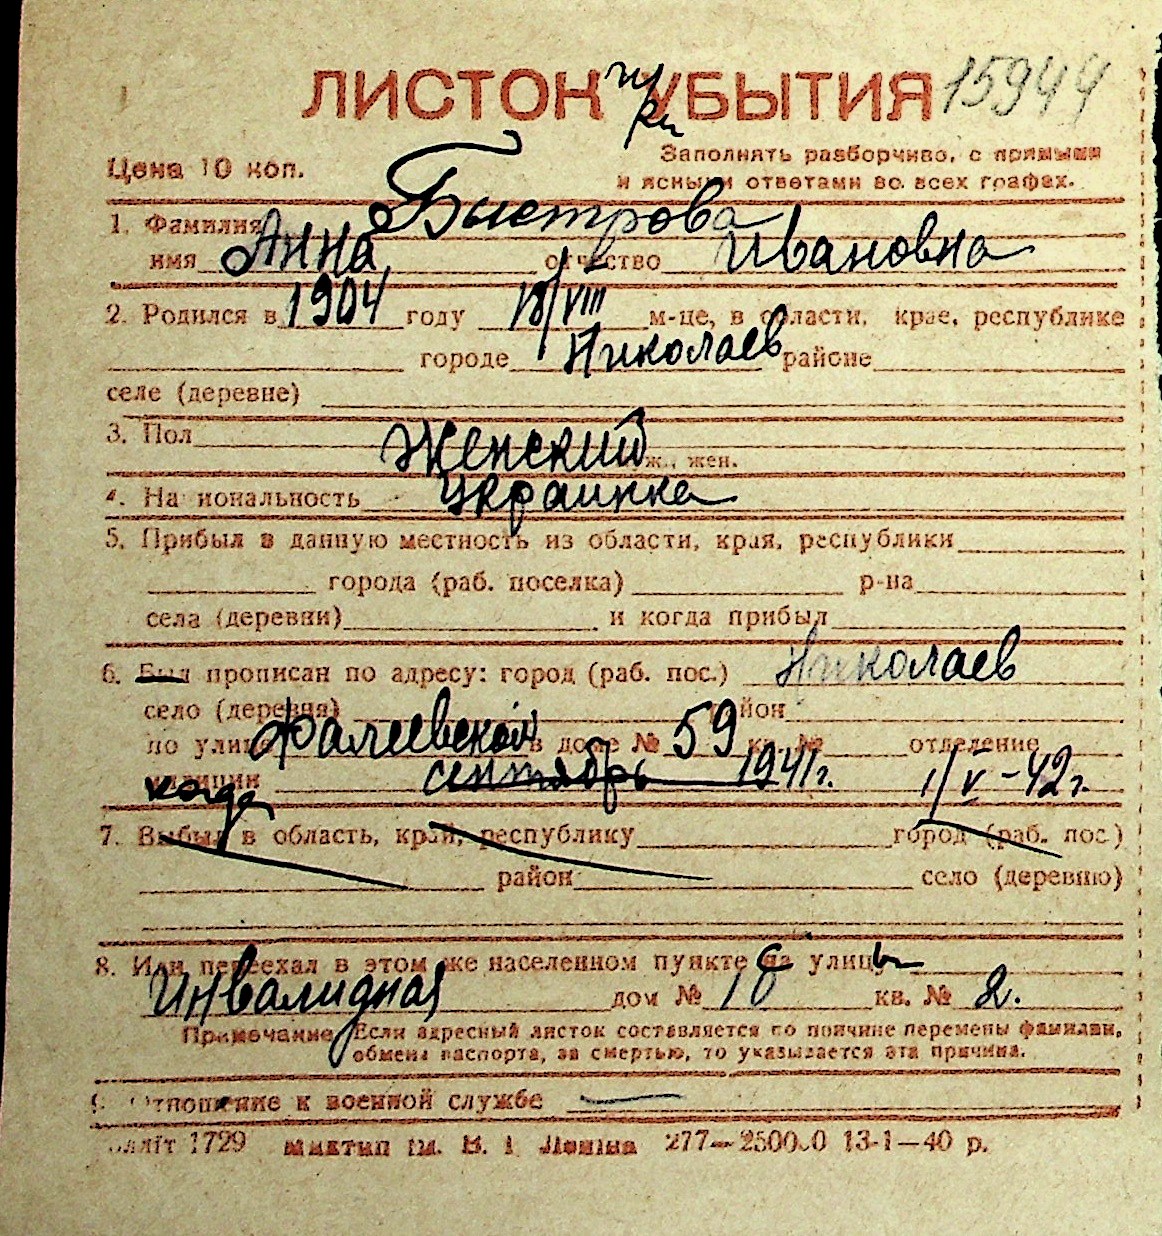 ЛИСТОК УБЫТИЯ 15944
Цена 10 коп.
Заполнять разборчиво, с прямыми
и ясными ответами во всех графах.
1. Фамилия Быстрова
имя Анна отчество Ивановна
2. Родился в 1904 году 18/VIII м-це, в области, крае, республике
городе Николаев районе
селе (деревне)
3. Пол Женский ж., жен.
4. Национальность украинка
5. Прибыл в данную местность из области, края, республики
города (раб. поселка) р-на
села (деревни) и когда прибыл
6. Был прописан по адресу: город (раб. пос.) Николаев
село (деревня) район
по улице Фалеевской в доме № 59 кв. № отделение
милиции сентябрь 1941 г. 1/V-42 г.
когда
7. Выбыл в область, край, республику город (раб. пос.)
район село (деревню)
8. Или переехал в этом же населенном пункте с улицы
Инвалидная дом № 18 кв. № 2.
Примечание Если адресный листок составляется по причине перемены фамилии,
обмена паспорта, за смертью, то указывается эта причина.
9. Отношение к военной службе —
1729 им. В. І. Леніна 13-1—40 р.